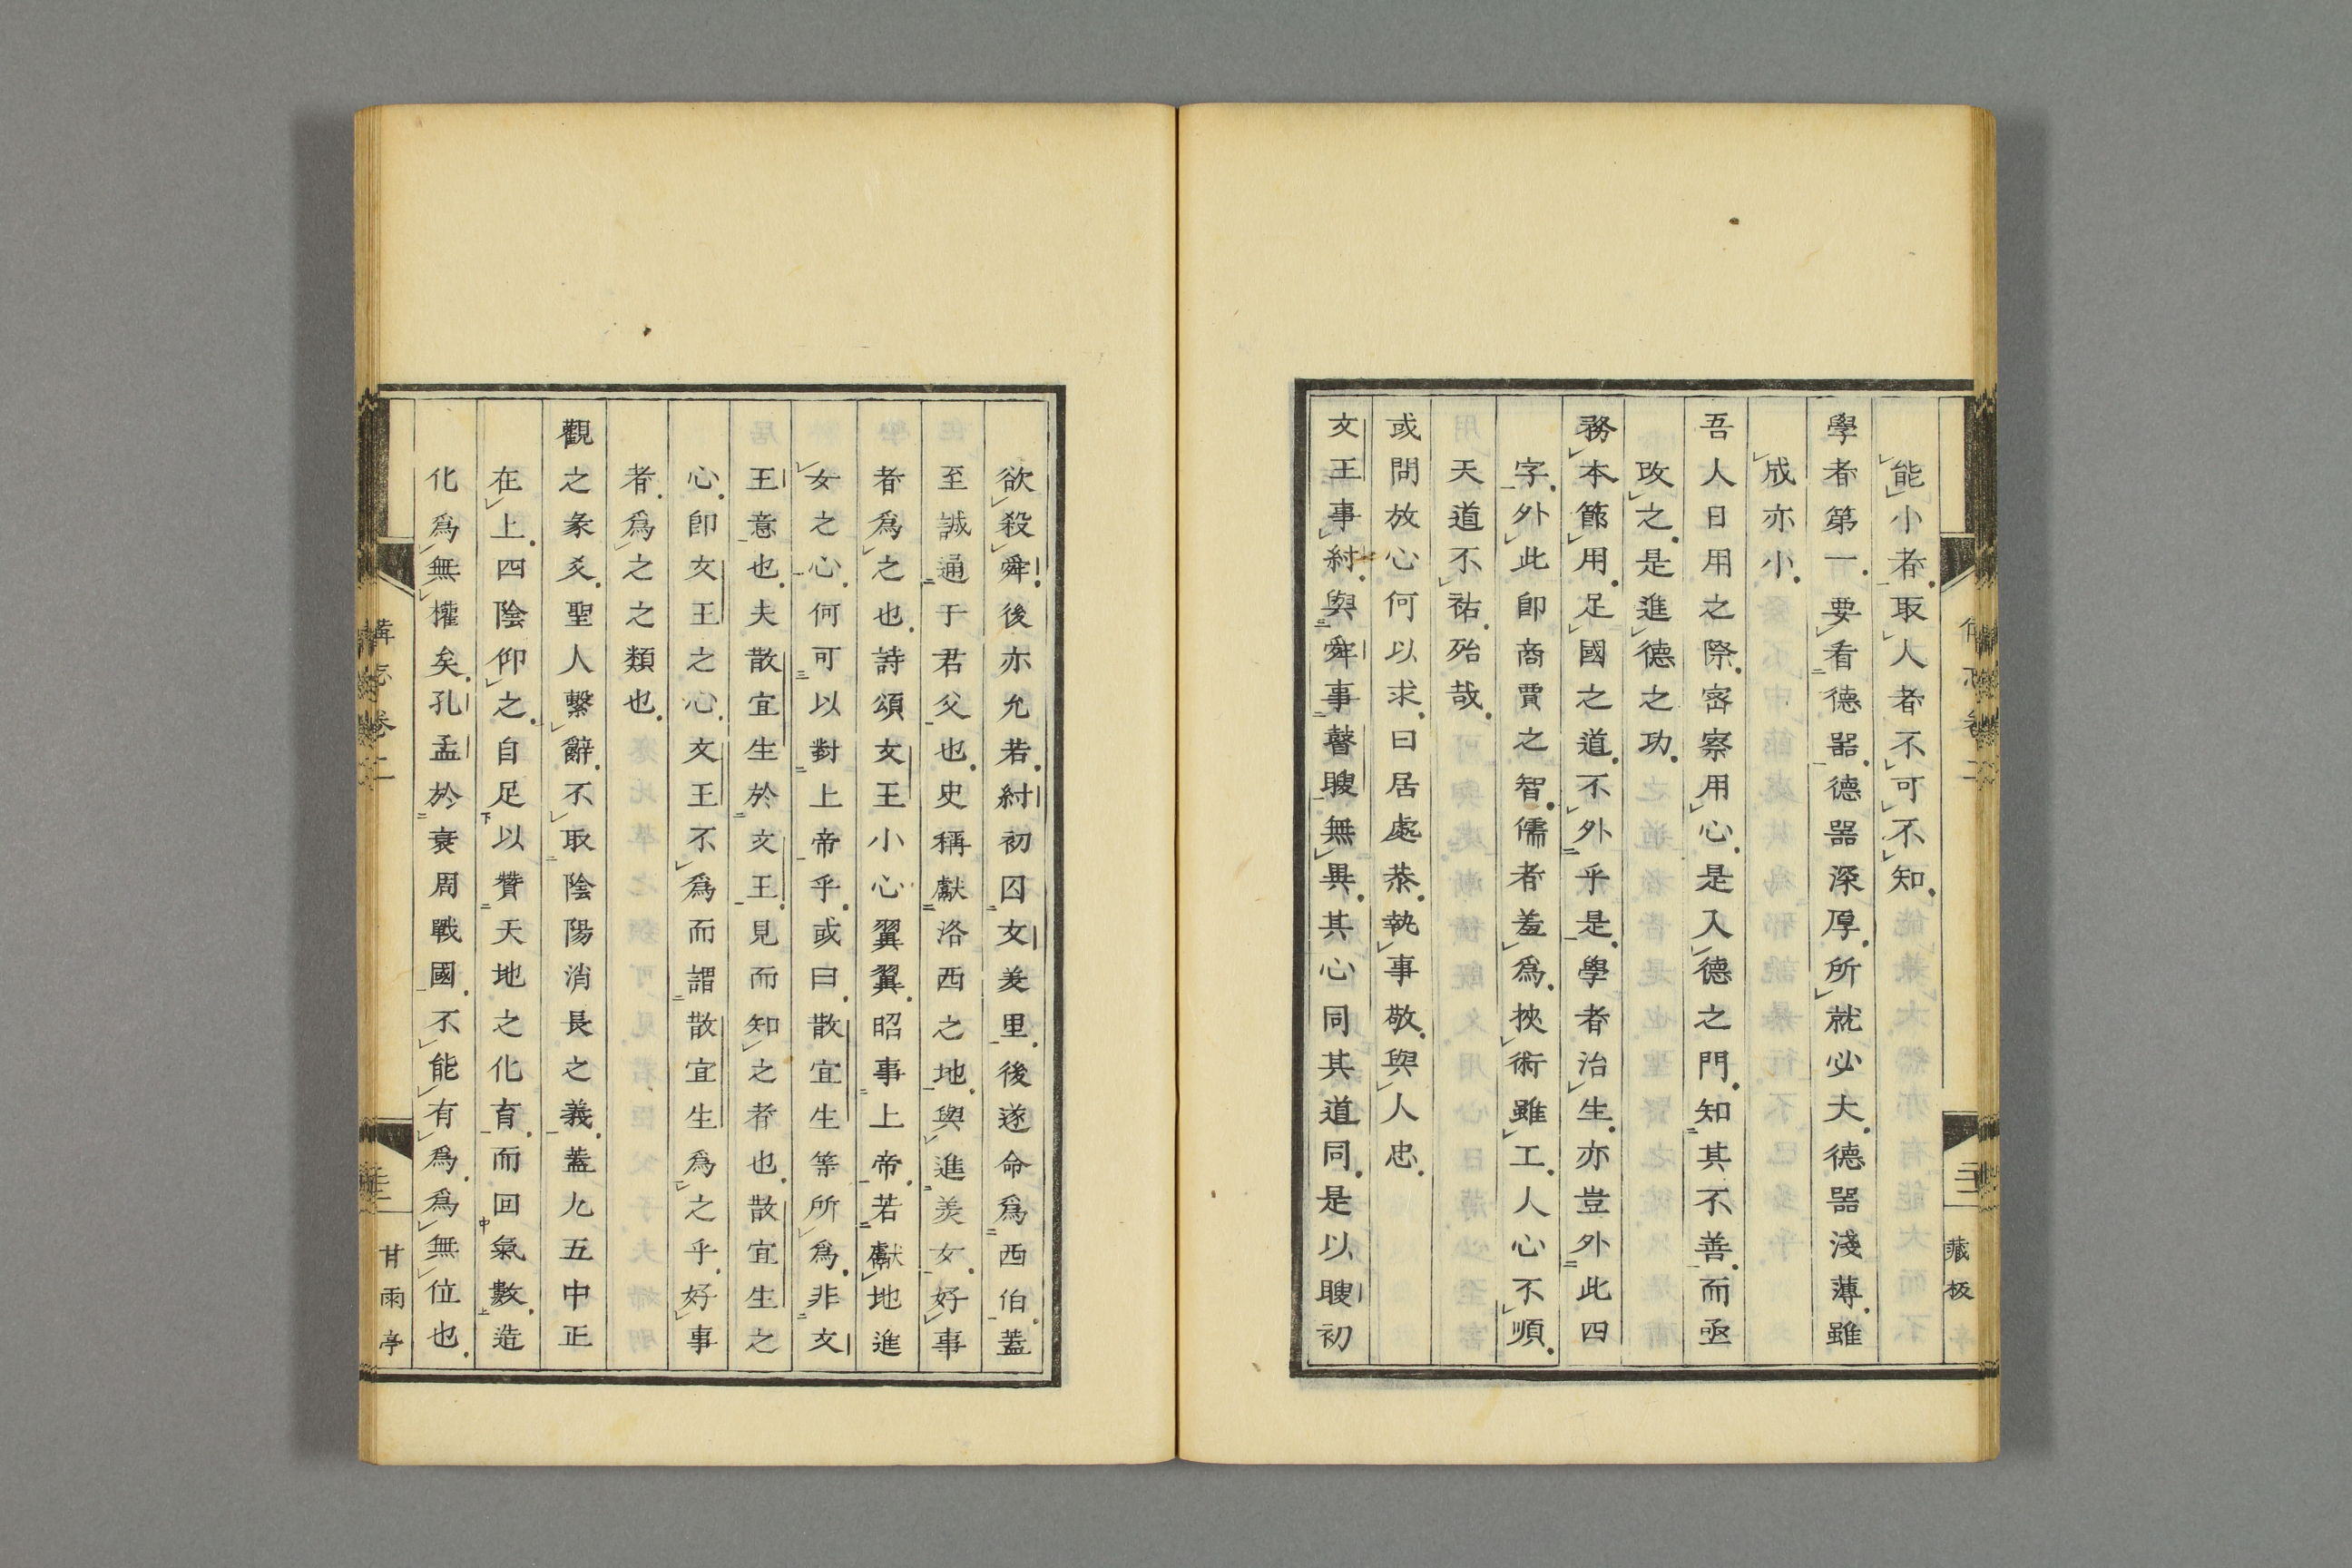 能小者取人者不可不知
學者第一要看德器德器深厚所就必大德器淺薄雖
成亦小
吾人日用之際宻察用心是入德之門知其不善而亟
改之是進德之功
務本節用足國之道不外乎是學者治生亦豈外此四
字外此卽商賈之智儒者羞爲挾術雖工人心不順
天道不祐殆哉
或問放心何以求曰居處恭執事敬與人忠
文王事紂與舜事瞽瞍無異其心同其道同是以瞍初
藏板
欲殺舜後亦允若紂初囚文羑里後遂命爲西伯蓋
至誠通于君父也史稱獻洛西之地與進美女好事
者爲之也詩頌文王小心翼翼昭事上帝若獻地進
女之心何可以對上帝乎或曰散宜生等所爲非文
王意也夫散宜生於文王見而知之者也散宜生之
心卽文王之心文王不爲而謂散宜生爲之乎好事
者爲之之類也
觀之彖爻聖人繫辭不取陰陽消長之義蓋九五中正
在上四陰仰之自足以贊天地之化育而回氣數造
化爲無權矣孔孟於衰周戰國不能有爲爲無位也
卷二
甘雨亭